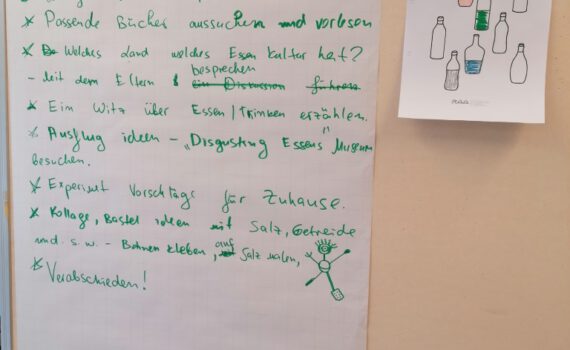 * Passende Bücher aussuchen und vorlesen
* Welches Land welches Essen Kultur hat?
besprechen
- Mit dem Eltern ein Diskussion führen
* Ein Witz über Essen/Trinken erzählen.
* Ausflug ideen - „Disgusting Essens" Museum
besuchen.
* Experiment Vorschlags für Zuhause.
* Kollage, Bastel ideen mit Salz, Getreide
und. s. w. - Bohnen kleben, auf Salz malen,
* Verabschieden!